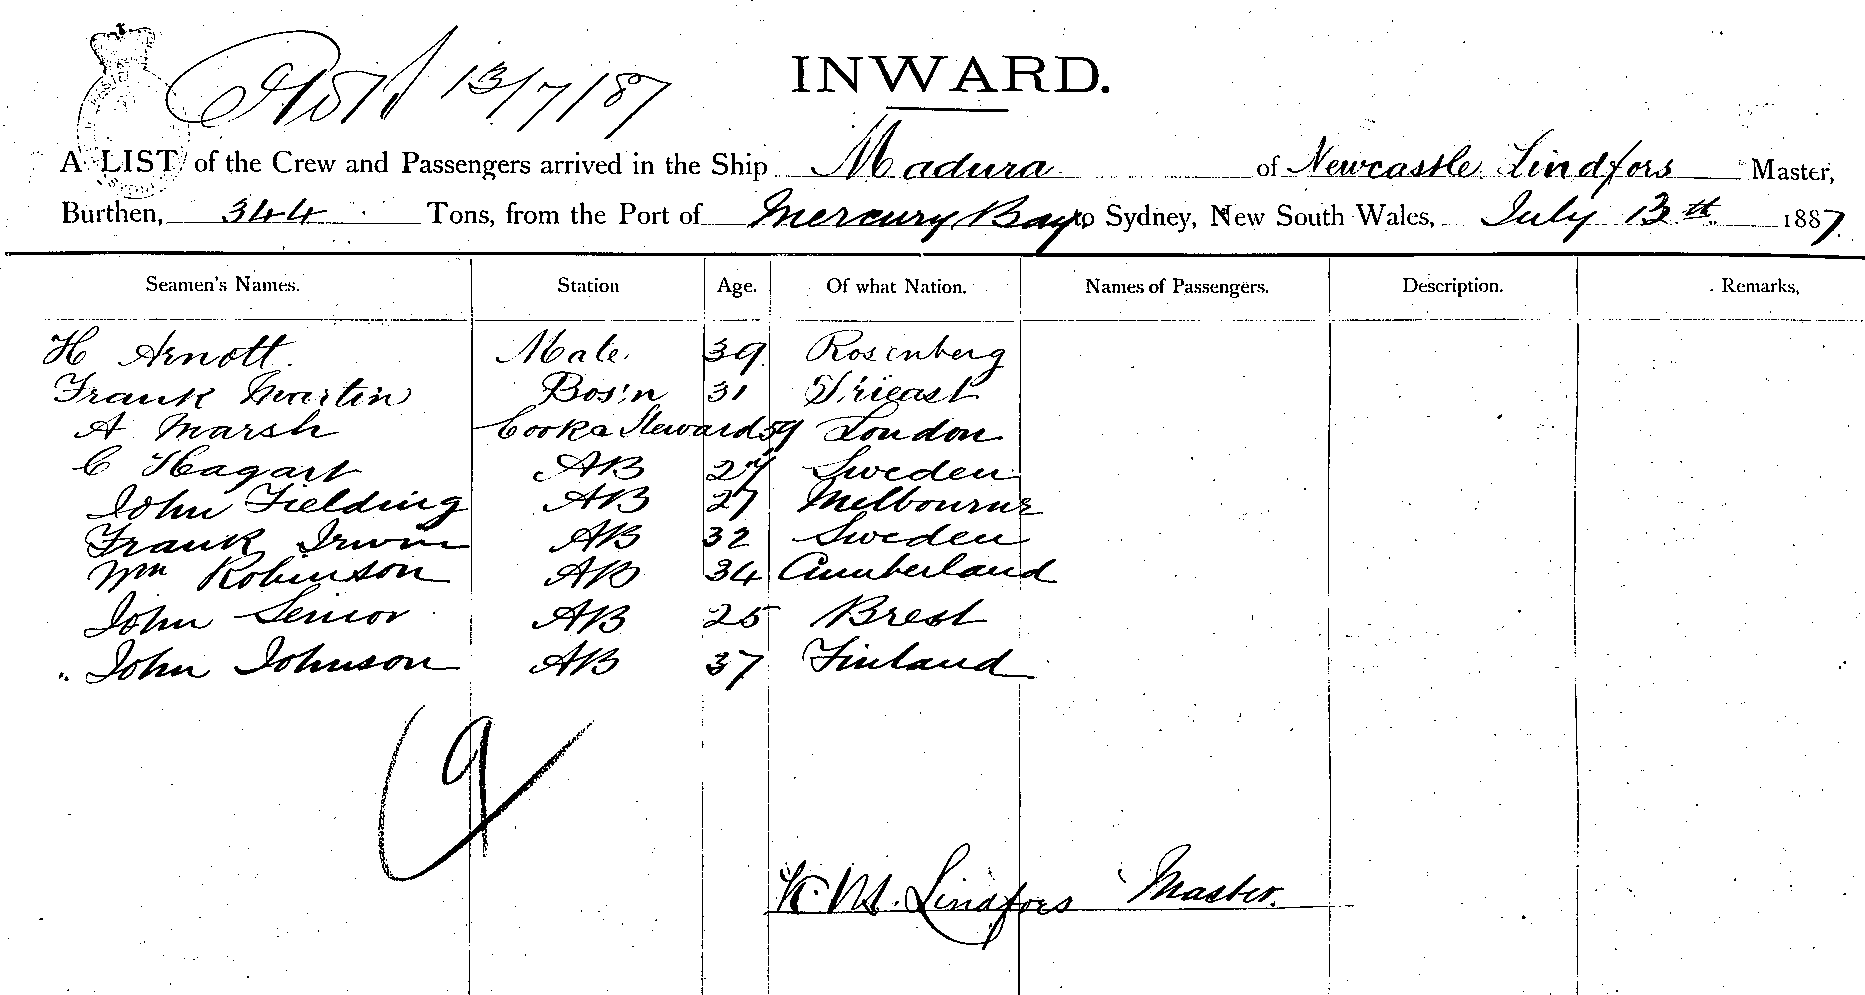 13/7/87
INWARD.
A LIST of the Crew and Passengers arrived in the Ship Madura of Newcastle Lindfors Master,
Burthen, 344 Tons, from the Port of Mercury Bay to Sydney, New South Wales, July 13th 1887
Seamen's Names. Station Age. Of what Nation. Names of Passengers. Description. Remarks,
H Arnott. Mate. 39 Rosenberg
Frank Martin Bos'n 31 Trieast
A Marsh Cook & Steward 59 London
C Hagart AB 27 Sweden
John Fielding AB 27 Melbourne
Frank Irwin AB 32 Sweden
Wm Robinson AB 34 Cumberland
John Senior AB 25 Brest
John Johnson AB 37 Finland
9
K. M. Lindfors Master.